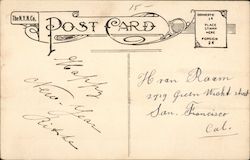 15-
The N.Y.N. Co.
POST CARD
DOMESTIC
1¢
PLACE
STAMP
HERE
FOREIGN
2¢
Happy
New-Year
H ran Raam
2919 Green Wicht street
San. Francisco
Cal.